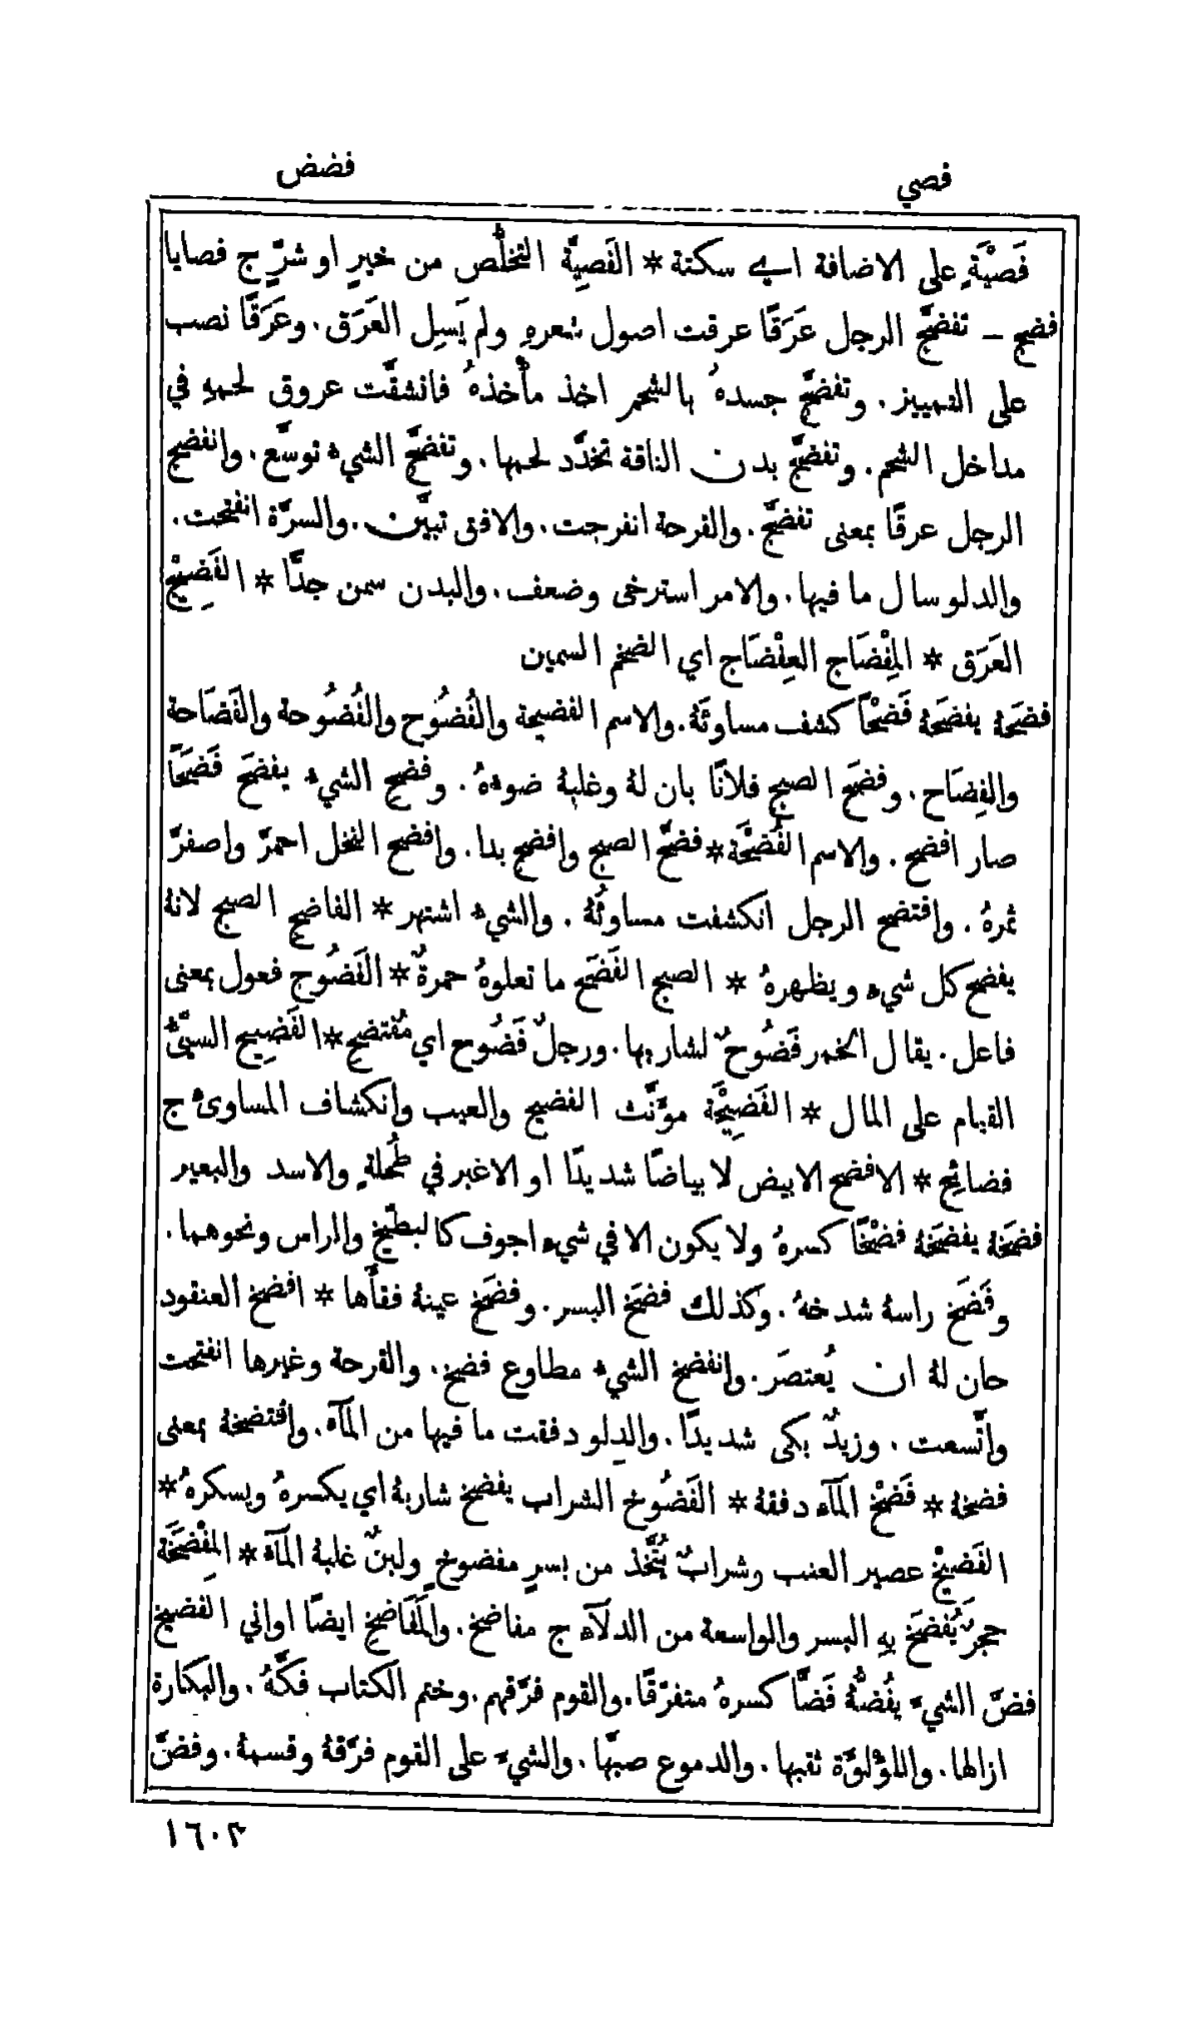 فصي
فضض
فَصْيَةٍ على الاضافة اي سكتة * الفَصِيَّة التخلُّص من خيرٍ او شرٍّ ج فصايا
فضج ــ تفضَّج الرجل عَرَقًا عرقت اصول شعرهِ ولم يَسِل العَرَق. وعَرَقًا نصب
على التمييز. وتفضَّج جسدهُ بالشحم اخذ مأْخذهُ فانشقَّت عروق لحمهِ في
مداخل الشحم. وتفضَّج بدن الناقة تخدَّد لحمها. وتفضَّج الشيء توسَّع. وانفضج
الرجل عرقًا بمعنى تفضَّج. والقرحة انفرجت. والافق تبيَّن. والسرَّة انفتحت.
والدلو سال ما فيها. والامر استرخى وضعف. والبدن سمن جدًّا * الفَضِيْج
العَرَق * المِفْضَاج العِفْضَاج اي الضخم السمين
فضَحَهُ يفضَحَهُ فَضْحًا كشف مساوئَهُ. والاسم الفضيحة والفُضُوح والفُضُوحة والفَضَاحة
والفِضَاح. وفضَح الصبح فلانًا بان لهُ وغلبهُ ضوءهُ. وفضِح الشيء يفضَح فَضَحًا
صار افضح. والاسم الفُضْحَة * فضَّح الصبح وافضح بدا. وافضح النخل احمرَّ واصفرَّ
ثمرهُ. وافتضح الرجل انكشفت مساوئُهُ. والشيء اشتهر * الفاضح الصبح لانهُ
يفضح كل شيء ويظهرهُ * الصبح الفَضَح ما تعلوهُ حمرةٌ * الفَضُوح فعول بمعنى
فاعل. يقال الخمر فَضُوحٌ لشاربها. ورجلٌ فَضُوح اي مُفتضح * الفَضِيح السيّئُ
القيام على المال * الفَضِيْحَة مؤنَّث الفضيح والعيب وانكشاف المساوئ ج
فضائِح * الافضح الابيض لا بياضًا شديدًا او الاغبر في طُحْلةٍ والاسد والبعير
فضَخَهُ يفضَخهُ فضْخًا كسرهُ ولا يكون الا في شيء اجوف كالبطّيخ والراس ونحوهما.
وفَضَخ راسهُ شدخهُ. وكذلك فضَخ البسر. وفضَخ عينهُ فقأَها * افضخ العنقود
حان لهُ ان يُعتصَر. وانفضخ الشيء مطاوع فضخ. والقرحة وغيرها انفتحت
واتَّسعت. وزيدٌ بكى شديدًا. والدلو دفقت ما فيها من المآء. وافتضخهُ بمعنى
فضخهُ * فَضْخ المآء دفقهُ * الفَضُوخ الشراب يفضخ شاربهُ اي يكسرهُ ويسكرهُ *
الفَضِيْخ عصير العنب وشرابٌ يُتَّخذ من بسرٍ مفضوخٍ ولبنٌ غلبهُ المآء * المِفْضَخَة
حجرٌ يُفضَخ بهِ البسر والواسعة من الدلآء ج مفاضخ. والمَفَاضخ ايضًا اواني الفضيخ
فضَّ الشيءَ يفُضُّهُ فَضًّا كسرهُ متفرّقًا. والقوم فرّقهم. وختم الكتاب فكَّهُ. والبكارة
ازالها. واللؤلؤَة ثقبها. والدموع صبَّها. والشيءَ على القوم فرَّقهُ وقسمهُ. وفضَّ
١٦٠٣